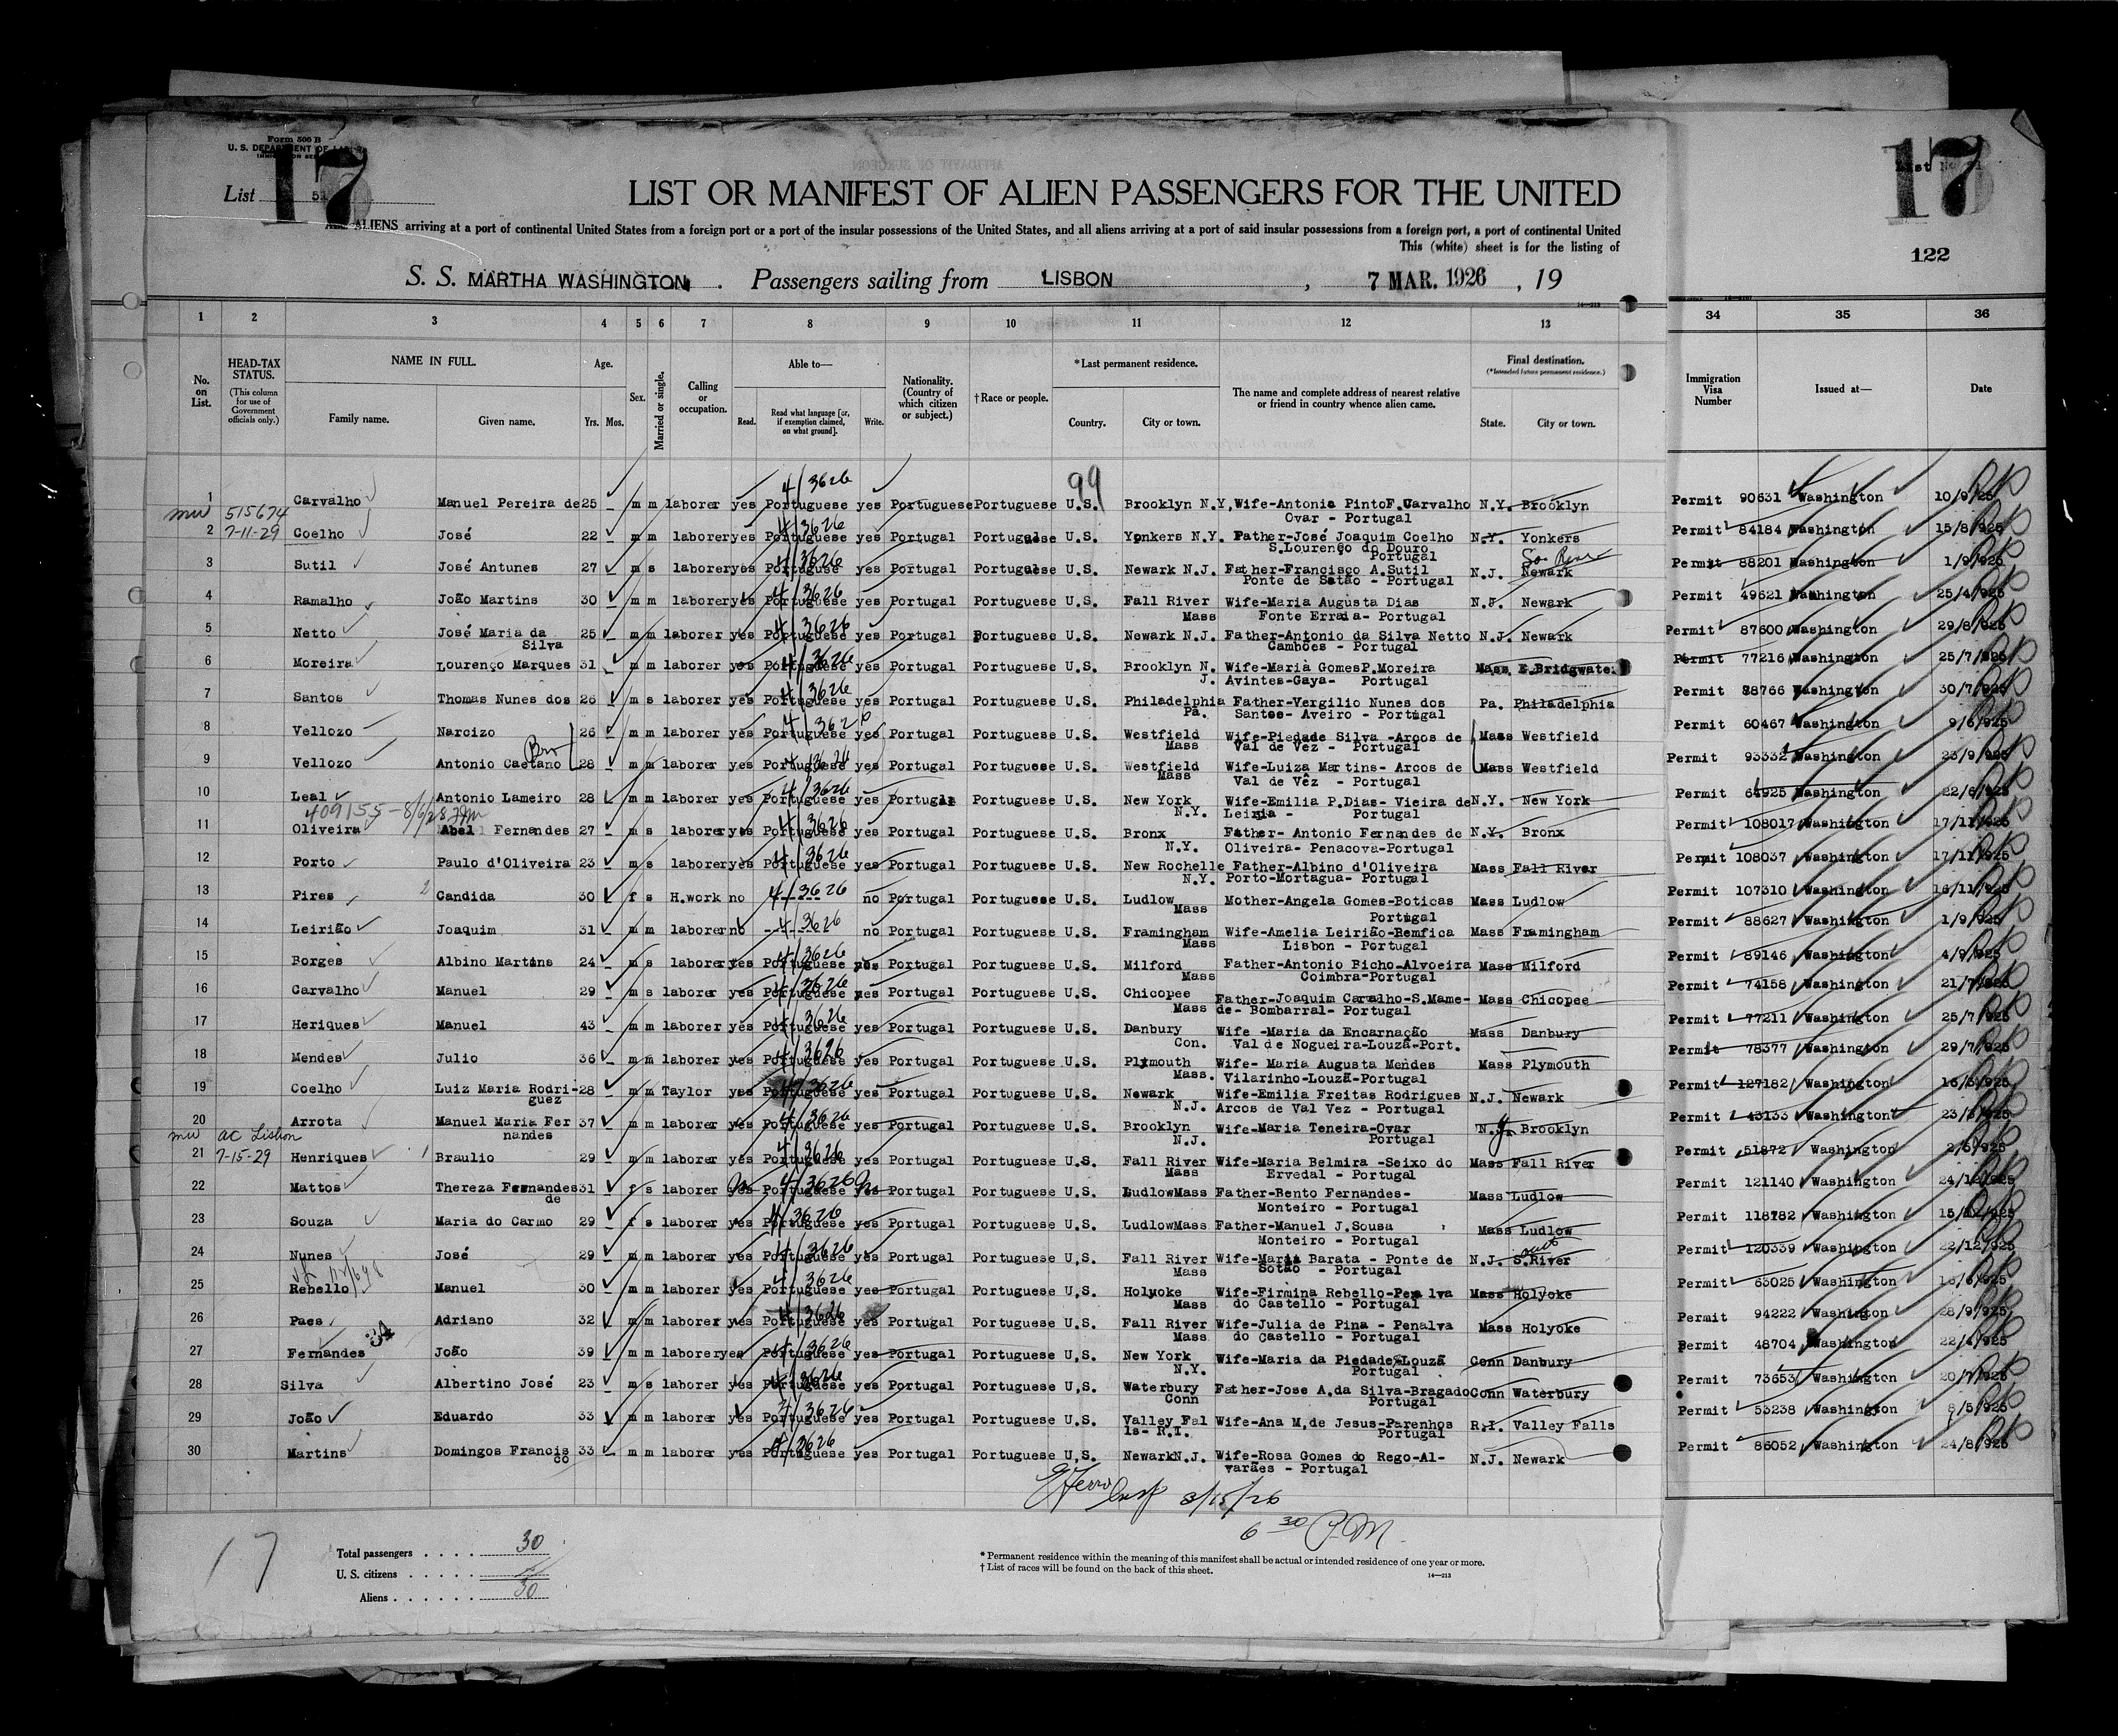 Form 500 B
U. S. DEPARTMENT OF
17
List 51
LIST OR MANIFEST OF ALIEN PASSENGERS FOR THE UNITED
ALIENS arriving at a port of continental United States from a foreign port or a port of the insular possessions of the United States, and all aliens arriving at a port of said insular possessions from a foreign port, a port of continental United
This (white) sheet is for the listing of
S. S. MARTHA WASHINGTON . Passengers sailing from LISBON , 7 MAR. 1926 , 19
17
122
1 2 3 4 5 6 7 8 9 10 11 12 13 34 35 36
No. on List.
HEAD-TAX STATUS.
(This column for use of Government officials only.)
NAME IN FULL.
Family name. Given name.
Age.
Yrs. Mos.
Sex.
Married or single.
Calling or occupation.
Able to—
Read. Read what language [or, if exemption claimed, on what ground]. Write.
Nationality. (Country of which citizen or subject.)
†Race or people.
*Last permanent residence.
Country. City or town.
The name and complete address of nearest relative or friend in country whence alien came.
Final destination.
(*Intended future permanent residence.)
State. City or town.
Immigration Visa Number
Issued at—
Date
99
1 Carvalho Manuel Pereira de 25 m m laborer yes Portuguese yes Portuguese Portuguese U.S. Brooklyn N.Y, Wife-Antonia PintoF.Carvalho N.Y. Brooklyn Permit 90631 Washington 10/9/925
Ovar - Portugal
515674
2 7-11-29 Coelho José 22 m m laborer yes Portuguese yes Portugal Portuguese U.S. Yonkers N.Y. Father-José Joaquim Coelho N.Y. Yonkers Permit 84184 Washington 15/8/925
S.Lourenço do Douro Portugal
3 Sutil José Antunes 27 m s laborer yes Portuguese yes Portugal Portuguese U.S. Newark N.J. Father-Francisco A.Sutil N.J. Newark Permit 88201 Washington 1/9/925
Ponte de Satão - Portugal
4 Ramalho João Martins 30 m m laborer yes Portuguese yes Portugal Portuguese U.S. Fall River Wife-Maria Augusta Dias N.J. Newark Permit 49621 Washington 25/4/925
Mass Fonte Errada- Portugal
5 Netto José Maria da 25 m m laborer yes Portuguese yes Portugal Portuguese U.S. Newark N.J. Father-Antonio da Silva Netto N.J. Newark Permit 87600 Washington 29/8/925
Silva Cambões - Portugal
6 Moreira Lourenço Marques 31 m m laborer yes Portuguese yes Portugal Portuguese U.S. Brooklyn N. Wife-Maria GomesP.Moreira Mass E.Bridgwater Permit 77216 Washington 25/7/925
J. Avintes-Gaya- Portugal
7 Santos Thomas Nunes dos 26 m s laborer yes Portuguese yes Portugal Portuguese U.S. Philadelphia Father-Vergilio Nunes dos Pa. Philadelphia Permit 88766 Washington 30/7/925
Pa. Santos- Aveiro - Portugal
8 Vellozo Narcizo 26 m m laborer yes Portuguese yes Portugal Portuguese U.S. Westfield Wife-Piedade Silva -Arcos de Mass Westfield Permit 60467 Washington 9/6/925
Mass Val de Vez - Portugal
Bro
9 Vellozo Antonio Caetano 28 m m laborer yes Portuguese yes Portugal Portuguese U.S. Westfield Wife-Luiza Martins- Arcos de Mass Westfield Permit 93332 Washington 23/9/925
Mass Val de Vêz - Portugal
10 Leal Antonio Lameiro 28 m m laborer yes Portuguese yes Portugal Portuguese U.S. New York Wife-Emilia P.Dias- Vieira de N.Y. New York Permit 64925 Washington 22/6/925
409155-8/6/28 N.Y. Leiria - Portugal
11 Oliveira Abel Fernandes 27 m s laborer yes Portuguese yes Portugal Portuguese U.S. Bronx Father- Antonio Fernandes de N.Y. Bronx Permit 108017 Washington 17/11/925
N.Y. Oliveira- Penacova-Portugal
12 Porto Paulo d'Oliveira 23 m s laborer yes Portuguese yes Portugal Portuguese U.S. New Rochelle Father-Albino d'Oliveira Mass Fall River Permit 108037 Washington 17/11/925
N.Y. Porto-Mortagua- Portugal
13 Pires 2 Candida 30 f s H.work no no Portugal Portuguese U.S. Ludlow Mother-Angela Gomes-Boticas Mass Ludlow Permit 107310 Washington 16/11/925
Mass Portugal
14 Leirião Joaquim 31 m m laborer no no Portugal Portuguese U.S. Framingham Wife-Amelia Leirião-Bemfica Mass Framingham Permit 88627 Washington 1/9/925
Mass Lisbon - Portugal
15 Borges Albino Martins 24 m s laborer yes Portuguese yes Portugal Portuguese U.S. Milford Father-Antonio Bicho-Alvoeira Mass Milford Permit 89146 Washington 4/9/925
Mass Coimbra-Portugal
16 Carvalho Manuel 29 m s laborer yes Portuguese yes Portugal Portuguese U.S. Chicopee Father-Joaquim Carvalho-S.Mame- Mass Chicopee Permit 74158 Washington 21/7/925
Mass de- Bombarral- Portugal
17 Heriques Manuel 43 m m laborer yes Portuguese yes Portugal Portuguese U.S. Danbury Wife -Maria da Encarnação Mass Danbury Permit 77211 Washington 25/7/925
Con. Val de Nogueira-Louzã-Port.
18 Mendes Julio 36 m m laborer yes Portuguese yes Portugal Portuguese U.S. Plymouth Wife- Maria Augusta Mendes Mass Plymouth Permit 78377 Washington 29/7/925
Mass. Vilarinho-Louzã-Portugal
19 Coelho Luiz Maria Rodri- 28 m m Taylor yes Portuguese yes Portugal Portuguese U.S. Newark Wife-Emilia Freitas Rodrigues N.J. Newark Permit 127182 Washington
guez N.J. Arcos de Val Vez - Portugal
20 Arrota Manuel Maria Fer 37 m m laborer yes Portuguese yes Portugal Portuguese U.S. Brooklyn Wife-Maria Teneira-Ovar N.Y. Brooklyn Permit 43133 Washington 23/3/925
nandes N.J. Portugal
ac Lisbon
21 7-15-29 Henriques 1 Braulio 29 m m laborer yes Portuguese yes Portugal Portuguese U.S. Fall River Wife-Maria Belmira -Seixo do Mass Fall River Permit 51872 Washington 2/5/925
Mass Ervedal - Portugal
22 Mattos Thereza Fernandes 31 f s laborer yes Portuguese yes Portugal Portuguese U.S. LudlowMass Father-Bento Fernandes- Mass Ludlow Permit 121140 Washington 24/12/925
de Monteiro - Portugal
23 Souza Maria do Carmo 29 f s laborer yes Portuguese yes Portugal Portuguese U.S. LudlowMass Father-Manuel J.Sousa Mass Ludlow Permit 118782 Washington 15/12/925
Monteiro - Portugal
24 Nunes José 29 m m laborer yes Portuguese yes Portugal Portuguese U,S. Fall River Wife-Maria Barata - Ponte de N.J. S.River Permit 120339 Washington 22/12/925
Mass Sotão - Portugal
25 Rebello Manuel 30 m m laborer yes Portuguese yes Portugal Portuguese U.S. Holyoke Wife-Firmina Rebello-Penalva Mass Holyoke Permit 65025 Washington 16/6/925
Mass do Castello - Portugal
26 Paes Adriano 32 m m laborer yes Portuguese yes Portugal Portuguese U.S. Fall River Wife-Julia de Pina - Penalva Mass Holyoke Permit 94222 Washington 28/9/925
34 Mass do Castello - Portugal
27 Fernandes João 39 m m laborer yes Portuguese yes Portugal Portuguese U,S. New York Wife-Maria da Piedade-Louzã Conn Danbury Permit 48704 Washington 22/4/925
N.Y. Portugal
28 Silva Albertino José 23 m s laborer yes Portuguese yes Portugal Portuguese U,S. Waterbury Father-Jose A.da Silva-Bragado Conn Waterbury Permit 73653 Washington
Conn Portugal
29 João Eduardo 33 m m laborer yes Portuguese yes Portugal Portuguese U.S. Valley Fal Wife-Ana M,de Jesus-Parenhos R.I. Valley Falls Permit 53238 Washington 8/5/925
ls- R.I. Portugal
30 Martins Domingos Francis 33 m m laborer yes Portuguese yes Portugal Portuguese U,S. NewarkN.J. Wife-Rosa Gomes do Rego-Al- N.J. Newark Permit 86052 Washington 24/8/925
co varães - Portugal
3/15/26
6 30 P.M.
17
Total passengers . . . . 30
U. S. citizens . . . . . .
Aliens . . . . . . 30
* Permanent residence within the meaning of this manifest shall be actual or intended residence of one year or more.
† List of races will be found on the back of this sheet.
14—213